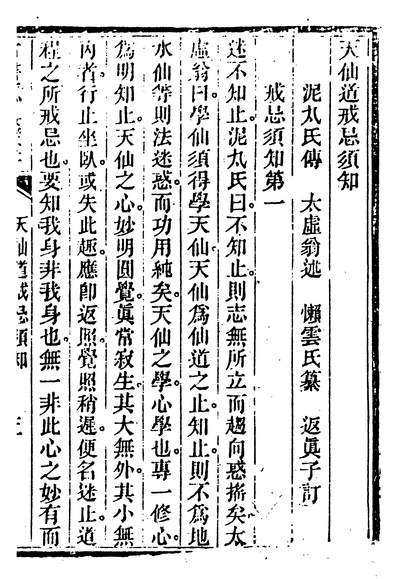 天仙道戒忌須知
泥丸氏傳　太虛翁述　懶雲氏纂　返眞子訂
戒忌須知第一
迷不知止。泥丸氏曰。不知止。則志無所立。而趨向惑搖矣。太
虛翁曰。學仙須得學天仙。天仙爲仙道之止。知止。則不爲地
水仙等則法迷惑。而功用純矣。天仙之學。心學也。專一修心。
爲明知止。天仙之心。妙明圓覺。眞常寂生。其大無外。其小無
內者。行止坐臥。或失此趣。應卽返照。覺照稍遲。便名迷止。道
程之所戒忌也。要知我身非我身也。無一非此心之妙有而
天仙道戒忌須知
三